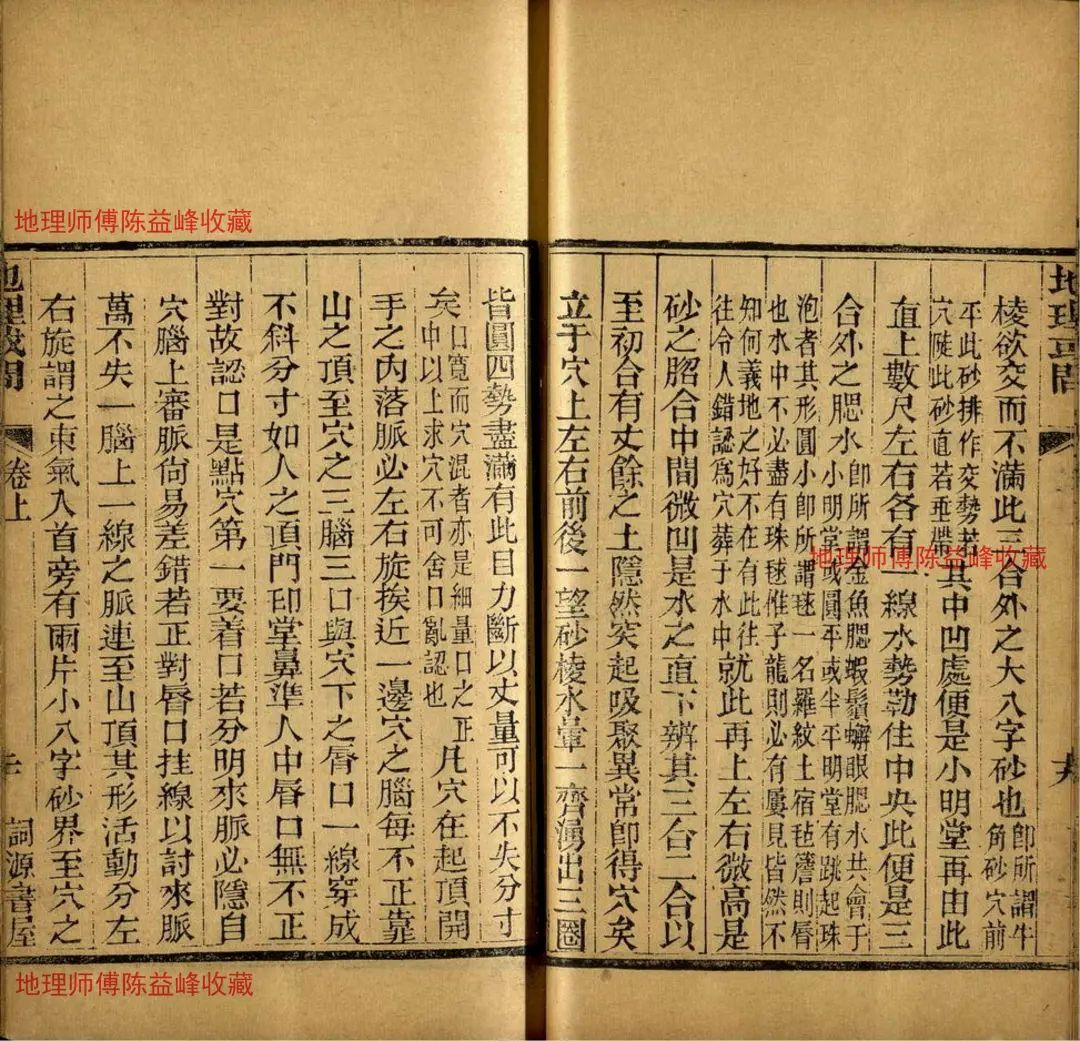 地理師傅陈益峰收藏
地理師傅陈益峰收藏
地理師傅陈益峰收藏
地理或問
棱欲交而不滿此三合外之大八字砂也卽所謂牛角砂穴前
平此砂排作交勢若穴陡此砂直若垂帶其中凹處便是小明堂再由此
直上數尺左右各有一線水勢勒住中央此便是三
合外之腮水卽所謂金魚腮蝦鬚蠏眼腮水共會于小明堂或圓平或半平明堂有跳起珠
泡者其形圓小卽所謂毬一名羅紋土宿毡簷則唇也水中不必盡有珠毬惟子龍則必有屢見皆然不
知何義地之好不在有此往往令人錯認爲穴葬于水中就此再上左右微高是
砂之䏰合中間微凹是水之直下辨其三合二合以
至初合有丈餘之土隱然突起吸聚異常卽得穴矣
立于穴上左右前後一望砂棱水暈一齊湧出三圈
皆圓四勢盡滿有此目力斷以丈量可以不失分寸
矣口寬而穴混者亦是細量口之正中以上求穴不可舍口亂認也凡穴在起頂開
手之內落脈必左右旋挨近一邊穴之腦每不正靠
山之頂至穴之三腦三口與穴下之唇口一線穿成
不斜分寸如人之頂門印堂鼻準人中唇口無不正
對故認口是點穴第一要着口若分明來脈必隱自
穴腦上審脈尙易差錯若正對唇口挂線以討來脈
萬不失一腦上一線之脈連至山頂其形活動分左
右旋謂之束氣入首旁有兩片小八字砂界至穴之
地理或問
卷上
詞源書屋